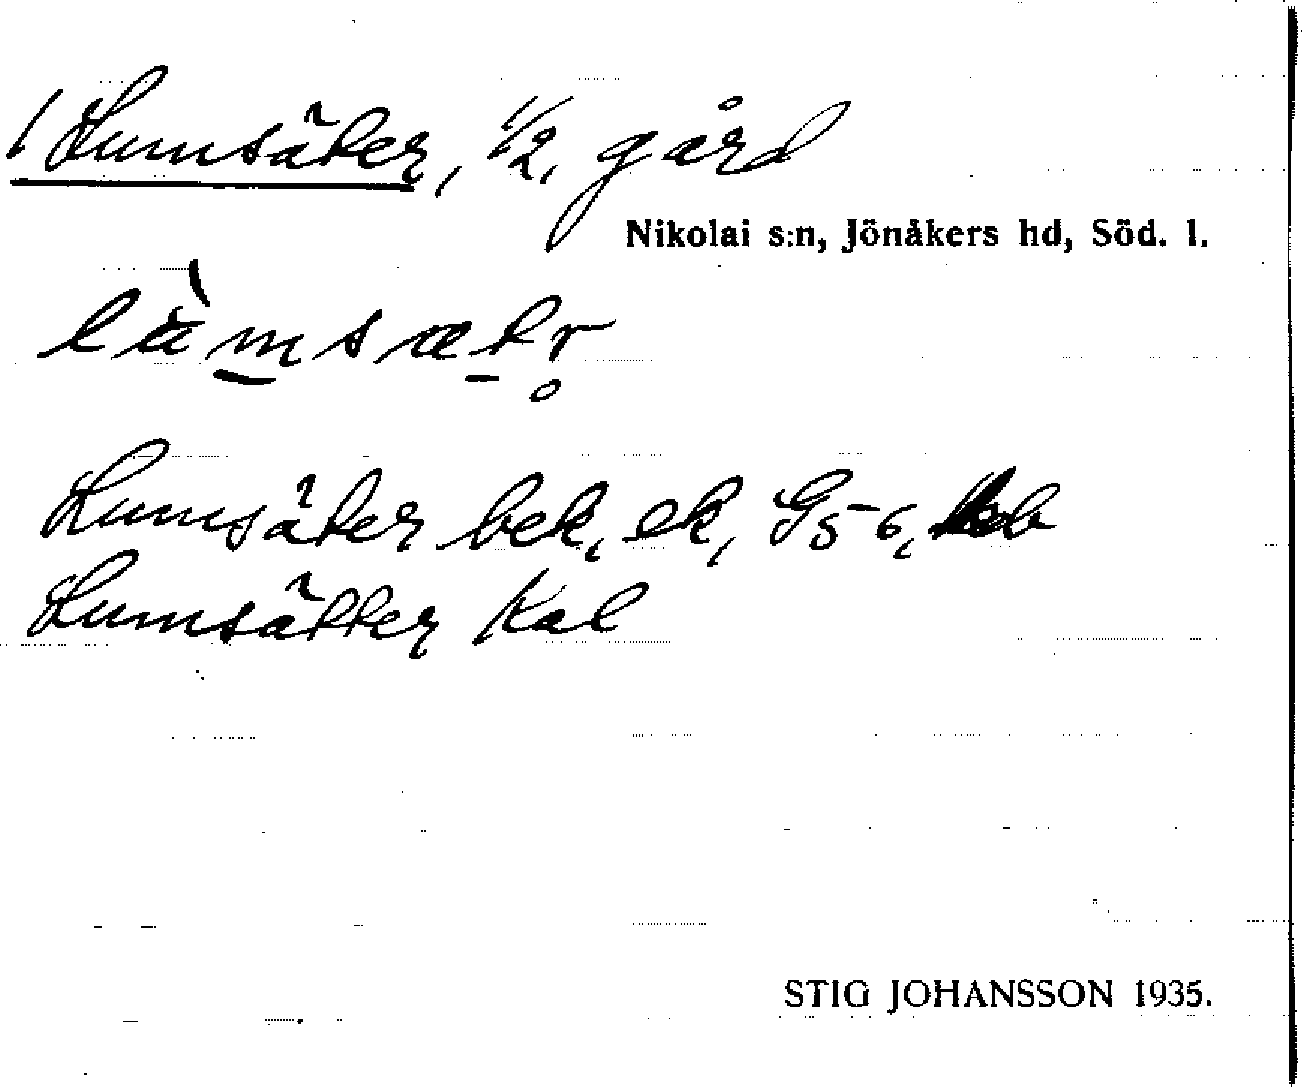 1 Lumsäter, 1/2, gård
Nikolai s:n, Jönåkers hd, Söd. l.
Lumsäter bek, ek, G5-6, 
Lumsätter Kal
STIG JOHANSSON 1935.